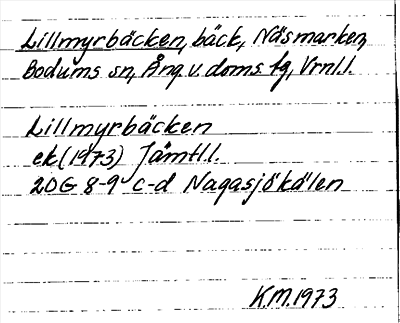 Lillmyrbäcken, bäck, Näsmarken,
Bodums sn, Ång. v. doms. fg, Vrnl.l.
Lillmyrbäcken
ek (1973) Jämtl.l.
20G 8-9 c-d Nagasjökälen
K.M. 1973